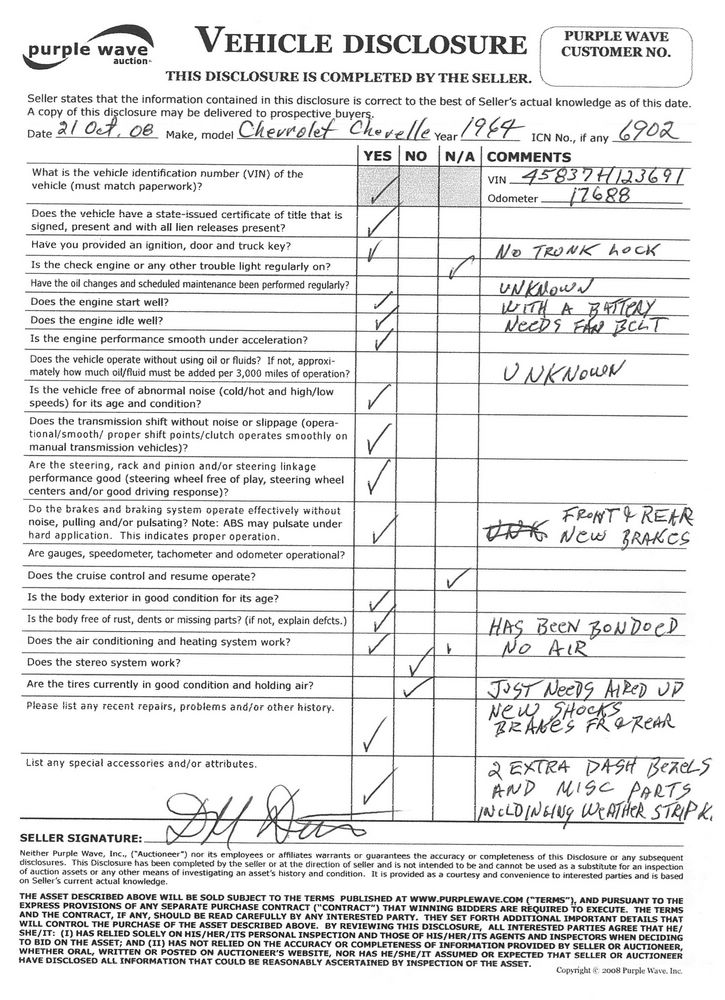 purple wave
auction
VEHICLE DISCLOSURE
PURPLE WAVE
CUSTOMER NO.
THIS DISCLOSURE IS COMPLETED BY THE SELLER.
Seller states that the information contained in this disclosure is correct to the best of Seller's actual knowledge as of this date.
A copy of this disclosure may be delivered to prospective buyers.
Date 21 Oct. 08 Make, model Chevrolet Chevelle Year 1964 ICN No., if any 6902
YES NO N/A COMMENTS
What is the vehicle identification number (VIN) of the
vehicle (must match paperwork)?
VIN 45837H123691
Odometer 17688
Does the vehicle have a state-issued certificate of title that is
signed, present and with all lien releases present?
Have you provided an ignition, door and truck key?
NO TRUNK LOCK
Is the check engine or any other trouble light regularly on?
Have the oil changes and scheduled maintenance been performed regularly?
UNKNOWN
Does the engine start well?
WITH A BATTERY
Does the engine idle well?
NEEDS FAN BELT
Is the engine performance smooth under acceleration?
Does the vehicle operate without using oil or fluids? If not, approxi-
mately how much oil/fluid must be added per 3,000 miles of operation?
UNKNOWN
Is the vehicle free of abnormal noise (cold/hot and high/low
speeds) for its age and condition?
Does the transmission shift without noise or slippage (opera-
tional/smooth/ proper shift points/clutch operates smoothly on
manual transmission vehicles)?
Are the steering, rack and pinion and/or steering linkage
performance good (steering wheel free of play, steering wheel
centers and/or good driving response)?
Do the brakes and braking system operate effectively without
noise, pulling and/or pulsating? Note: ABS may pulsate under
hard application. This indicates proper operation.
FRONT & REAR
UNK NEW BRAKES
Are gauges, speedometer, tachometer and odometer operational?
Does the cruise control and resume operate?
Is the body exterior in good condition for its age?
Is the body free of rust, dents or missing parts? (if not, explain defcts.)
HAS BEEN BONDOED
Does the air conditioning and heating system work?
NO AIR
Does the stereo system work?
Are the tires currently in good condition and holding air?
JUST NEEDS AIRED UP
Please list any recent repairs, problems and/or other history.
NEW SHOCKS
BRAKES FR & REAR
List any special accessories and/or attributes.
2 EXTRA DASH BEZELS
AND MISC PARTS
INCLDINGING WEATHER STRIPK.
SELLER SIGNATURE:
Neither Purple Wave, Inc., ("Auctioneer") nor its employees or affiliates warrants or guarantees the accuracy or completeness of this Disclosure or any subsequent
disclosures. This Disclosure has been completed by the seller or at the direction of seller and is not intended to be and cannot be used as a substitute for an inspection
of auction assets or any other means of investigating an asset's history and condition. It is provided as a courtesy and convenience to interested parties and is based
on Seller's current actual knowledge.
THE ASSET DESCRIBED ABOVE WILL BE SOLD SUBJECT TO THE TERMS PUBLISHED AT WWW.PURPLEWAVE.COM ("TERMS"), AND PURSUANT TO THE
EXPRESS PROVISIONS OF ANY SEPARATE PURCHASE CONTRACT ("CONTRACT") THAT WINNING BIDDERS ARE REQUIRED TO EXECUTE. THE TERMS
AND THE CONTRACT, IF ANY, SHOULD BE READ CAREFULLY BY ANY INTERESTED PARTY. THEY SET FORTH ADDITIONAL IMPORTANT DETAILS THAT
WILL CONTROL THE PURCHASE OF THE ASSET DESCRIBED ABOVE. BY REVIEWING THIS DISCLOSURE, ALL INTERESTED PARTIES AGREE THAT HE/
SHE/IT: (I) HAS RELIED SOLELY ON HIS/HER/ITS PERSONAL INSPECTION AND THOSE OF HIS/HER/ITS AGENTS AND INSPECTORS WHEN DECIDING
TO BID ON THE ASSET; AND (II) HAS NOT RELIED ON THE ACCURACY OR COMPLETENESS OF INFORMATION PROVIDED BY SELLER OR AUCTIONEER,
WHETHER ORAL, WRITTEN OR POSTED ON AUCTIONEER'S WEBSITE, NOR HAS HE/SHE/IT ASSUMED OR EXPECTED THAT SELLER OR AUCTIONEER
HAVE DISCLOSED ALL INFORMATION THAT COULD BE REASONABLY ASCERTAINED BY INSPECTION OF THE ASSET.
Copyright © 2008 Purple Wave, Inc.